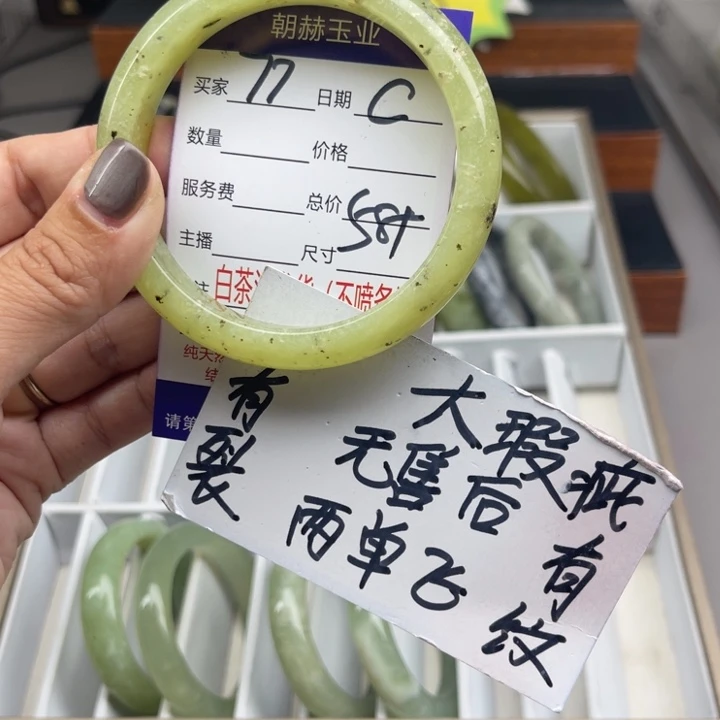 朝赫玉业
买家 77 日期 C
数量 价格
服务费 总价 58f
主播 尺寸
白茶 (不喷
纯天
请第
大瑕疵
有裂 无售后 有纹
两单飞